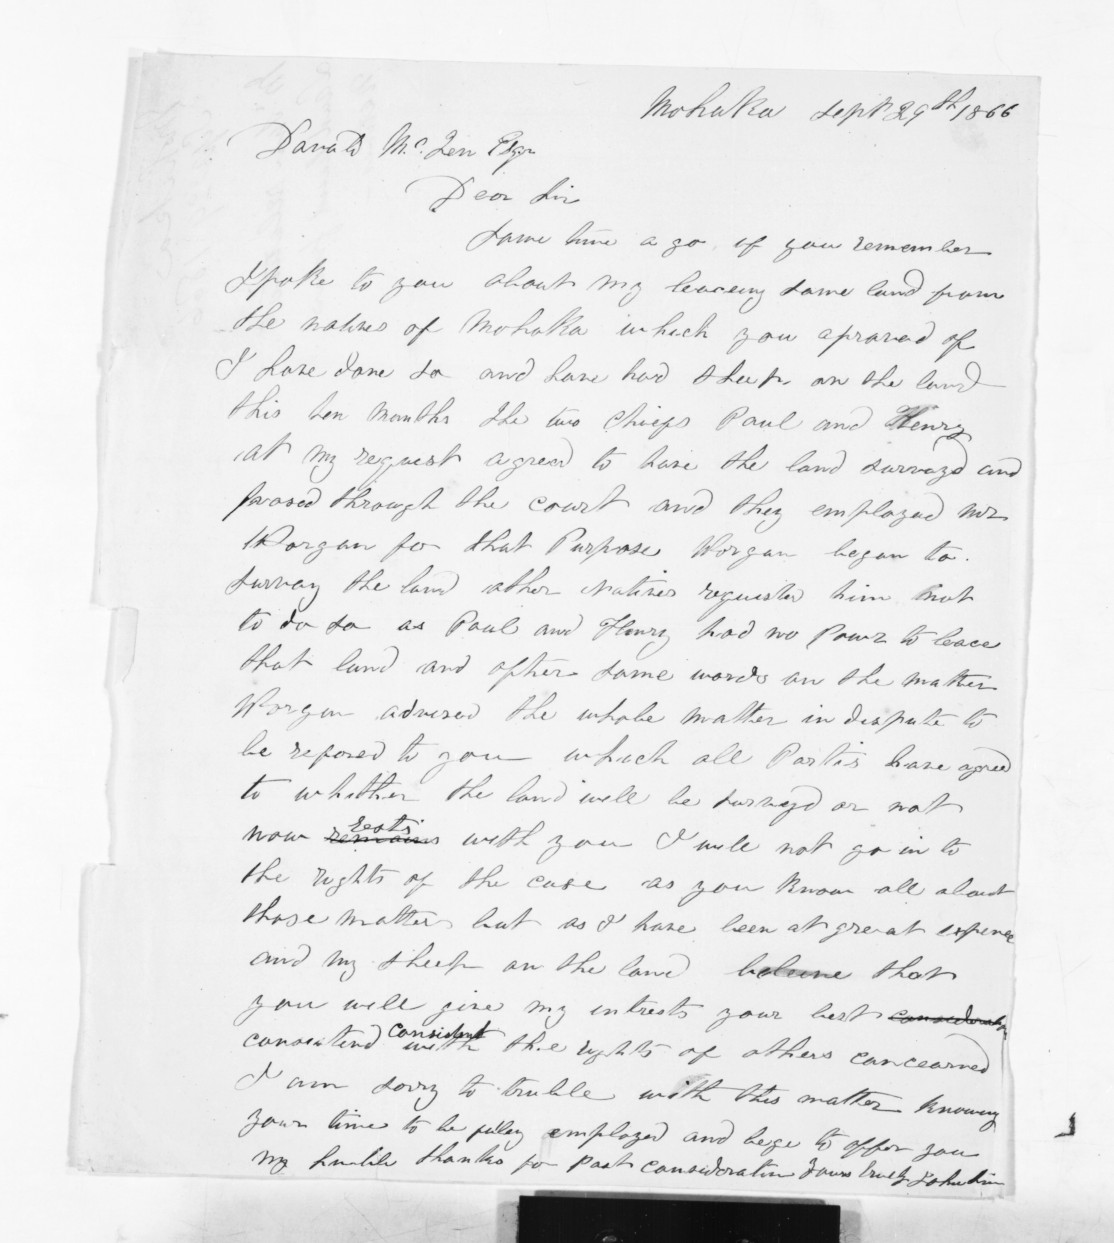 Mohaka Sept 29th 1866
Donald Mc Len Esqr
Dear Sir
Some time a go if you remember
I spoke to you about my leaceing some land from
the natives of Mohaka which you aproved of
I have done so and have had sheep on the land
this ten months the two chiefs Paul and Henry
at my request agreed to have the land survayd and
passed through the court and they employed Mr
Worgan for that Purpose Worgan began to
survay the land other Natives requisted him not
to do so as Paul and Henry had no Powr to leace
that land and ofther some words on the matter
Worgan advised the whole matter in dispute to
be refored to you which all Partis have agreed
to whither the land will be survayd or not
now remains rests with you I will not go in to
the rights of the case as you know all about
those matters but as I have been at great expence
and my sheep on the land that
you will give my intrests your best consideration
consistend consistent with the rights of others concearned
I am sorry to truble with this matter knowing
your time to be fuley employed and bege to offer you
my humble thanks for Past consideration Yours truly John Sim